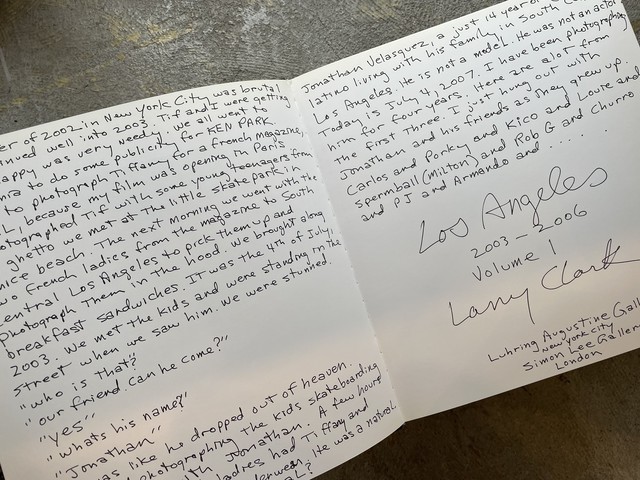 er of 2002 in New York City was brutal
inued well into 2003. Tif and I were getting
appy was very needy. We all went to
to do some publicity for KEN PARK.
to photograph Tiffany for a french magazine,
because my film was opening in Paris
otographed Tif with some young teenagers from
ghetto we met at the little skate park in
nice beach. The next morning we went with the
wo french ladies from the magazine to South
entral Los Angeles to pick them up and
photograph them in the hood. We brought along
breakfast sandwiches. It was the 4th of July,
2003. We met the kids and were standing in the
street when we saw him. We were stunned.
"who is that?"
"our friend. can he come?"
"yes"
"whats his name?"
"Jonathan"
was like he dropped out of heaven.
photographing the kids skateboarding
with Jonathan. A few hours
ladies had Tiffany and
He was a natural.
Jonathan Velasquez, a just 14 year old
latino living with his family in South
Los Angeles. He is not a model. He was not an actor
Today is July 4, 2007. I have been photographing
him for four years. Here are alot from
the first three. I just hung out with
Jonathan and his friends as they grew up.
Carlos and Porky and Kico and Louie and
spermball (Milton) and Rob G and Churro
and PJ and Armando and . . . . . .
Los Angeles
2003 – 2006
Volume 1
Larry Clark
Luhring Augustine Gall
New York City
Simon Lee Galler
London